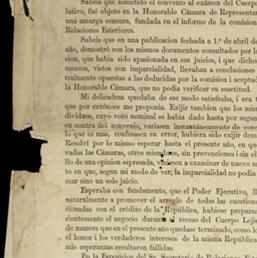 Sabeis que sometido el convenio al examen del Cuerpo
lativo, fué objeto en la Honorable Cámara de Representa
una amarga censura, fundada en el informe de la comision
Relaciones Exteriores.
Sabeis que en una publicacion fechada a 1.º de abril de
año, demostró con los mismos documentos consultados por la
sion, que había sido apasionada en sus juicios, i que dichos
mentos, vistos con imparcialidad, llevaban a conclusiones
tralmente opuestas a las deducidas por la comision i aceptad
la Honorable Cámara, que no podia verificar su exactitud.
Mi delicadeza quedaba de ese modo satisfecha, i era t
que por entónces me proponia. Exijir tambien que los mis
dividuos, cuyo voto nominal se habia dado hasta por segun
en contra del convenio, variasen instantáneamente de con
lo que es mas, confesasen su error, hubiera sido exijir dema
Resolví por lo mismo esperar hasta el presente año, en qu
vadas las Cámaras, otros miembros, sin prevenciones i sin el
llo de una opinion espresada, viniesen a examinar de nuevo
to en que, segun mi modo de ver, la imparcialidad no podia
mar sino un solo juicio.
Esperaba con fundamento, que el Poder Ejecutivo, ll
naturalmente a promover el arreglo de todas las cuestion
cionadas con el crédito de la República, hubiese prepara
cientemente el negocio durante el receso del Cuerpo Lejis
de manera que en el presente año quedase terminado, como lo
el honor i los verdaderos intereses de la misma Repúblic
mis esperanzas resultaron fallidas.
En la Esposicion del Sr. Secretario de Relaciones Este